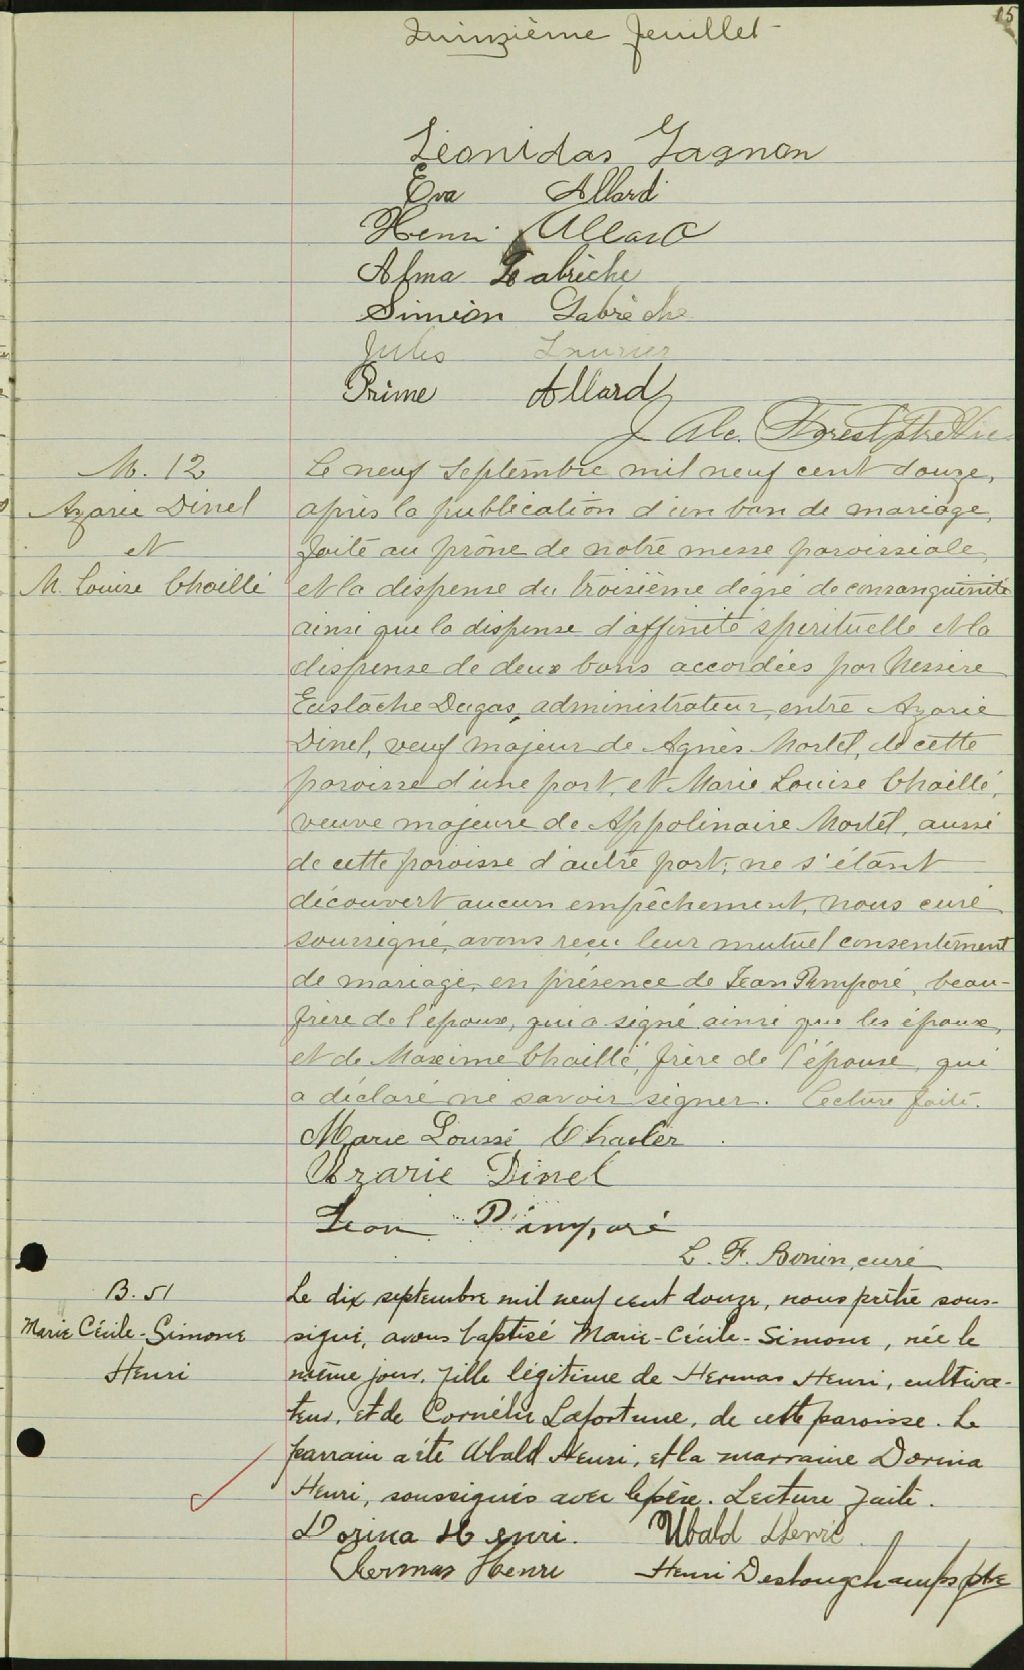 15
Quinzième feuillet
Léonidas Gagnon
Eva Allard
Henri Allard
Alma Gabriche
Siméon Gabrèche
Jules
Prime Allard
J. Alc. Forest ptre Vic
M. 12
Azarie Dinel
et
M. Louise Chaillé
Le neuf septembre mil neuf cent douze,
après la publication d'un ban de mariage,
faite au prône de notre messe paroissiale,
et la dispense du troisième dégré de consanguinité
ainsi que la dispense d'affinité spirituelle et la
dispense de deux bans accordées par Messire
Eustache Dugas, administrateur, entre Azarie
Dinel, veuf majeur de Agnès Martel, de cette
paroisse d'une part, et Marie Louise Chaillé,
veuve majeure de Appolinaire Martel, aussi
de cette paroisse d'autre part; ne s'étant
découvert aucun empêchement, nous curé
soussigné, avons reçu leur mutuel consentement
de mariage, en présence de Jean Pimparé, beau-
frère de l'époux, qui a signé ainsi que les époux,
et de Maxime Chaillé, frère de l'épouse, qui
a déclaré ne savoir signer. Lecture faite.
Marie Loussi Chailer
Azarie Dinel
Jean Pimparé
L. F. Bonin, curé
B. 51
Marie Cécile-Simone
Henri
Le dix septembre mil neuf cent douze, nous prêtre sous-
signé, avons baptisé Marie-Cécile-Simone, née le
même jour, fille légitime de Hermas Henri, cultiva-
teur, et de Cornélie Lafortune, de cette paroisse. Le
parrain a été Ubald Henri, et la marraine Dorina
Henri, soussignés avec le père. Lecture faite.
Dorina Henri. Ubald Henri
Hermas Henri Henri Deslongchamps ptre